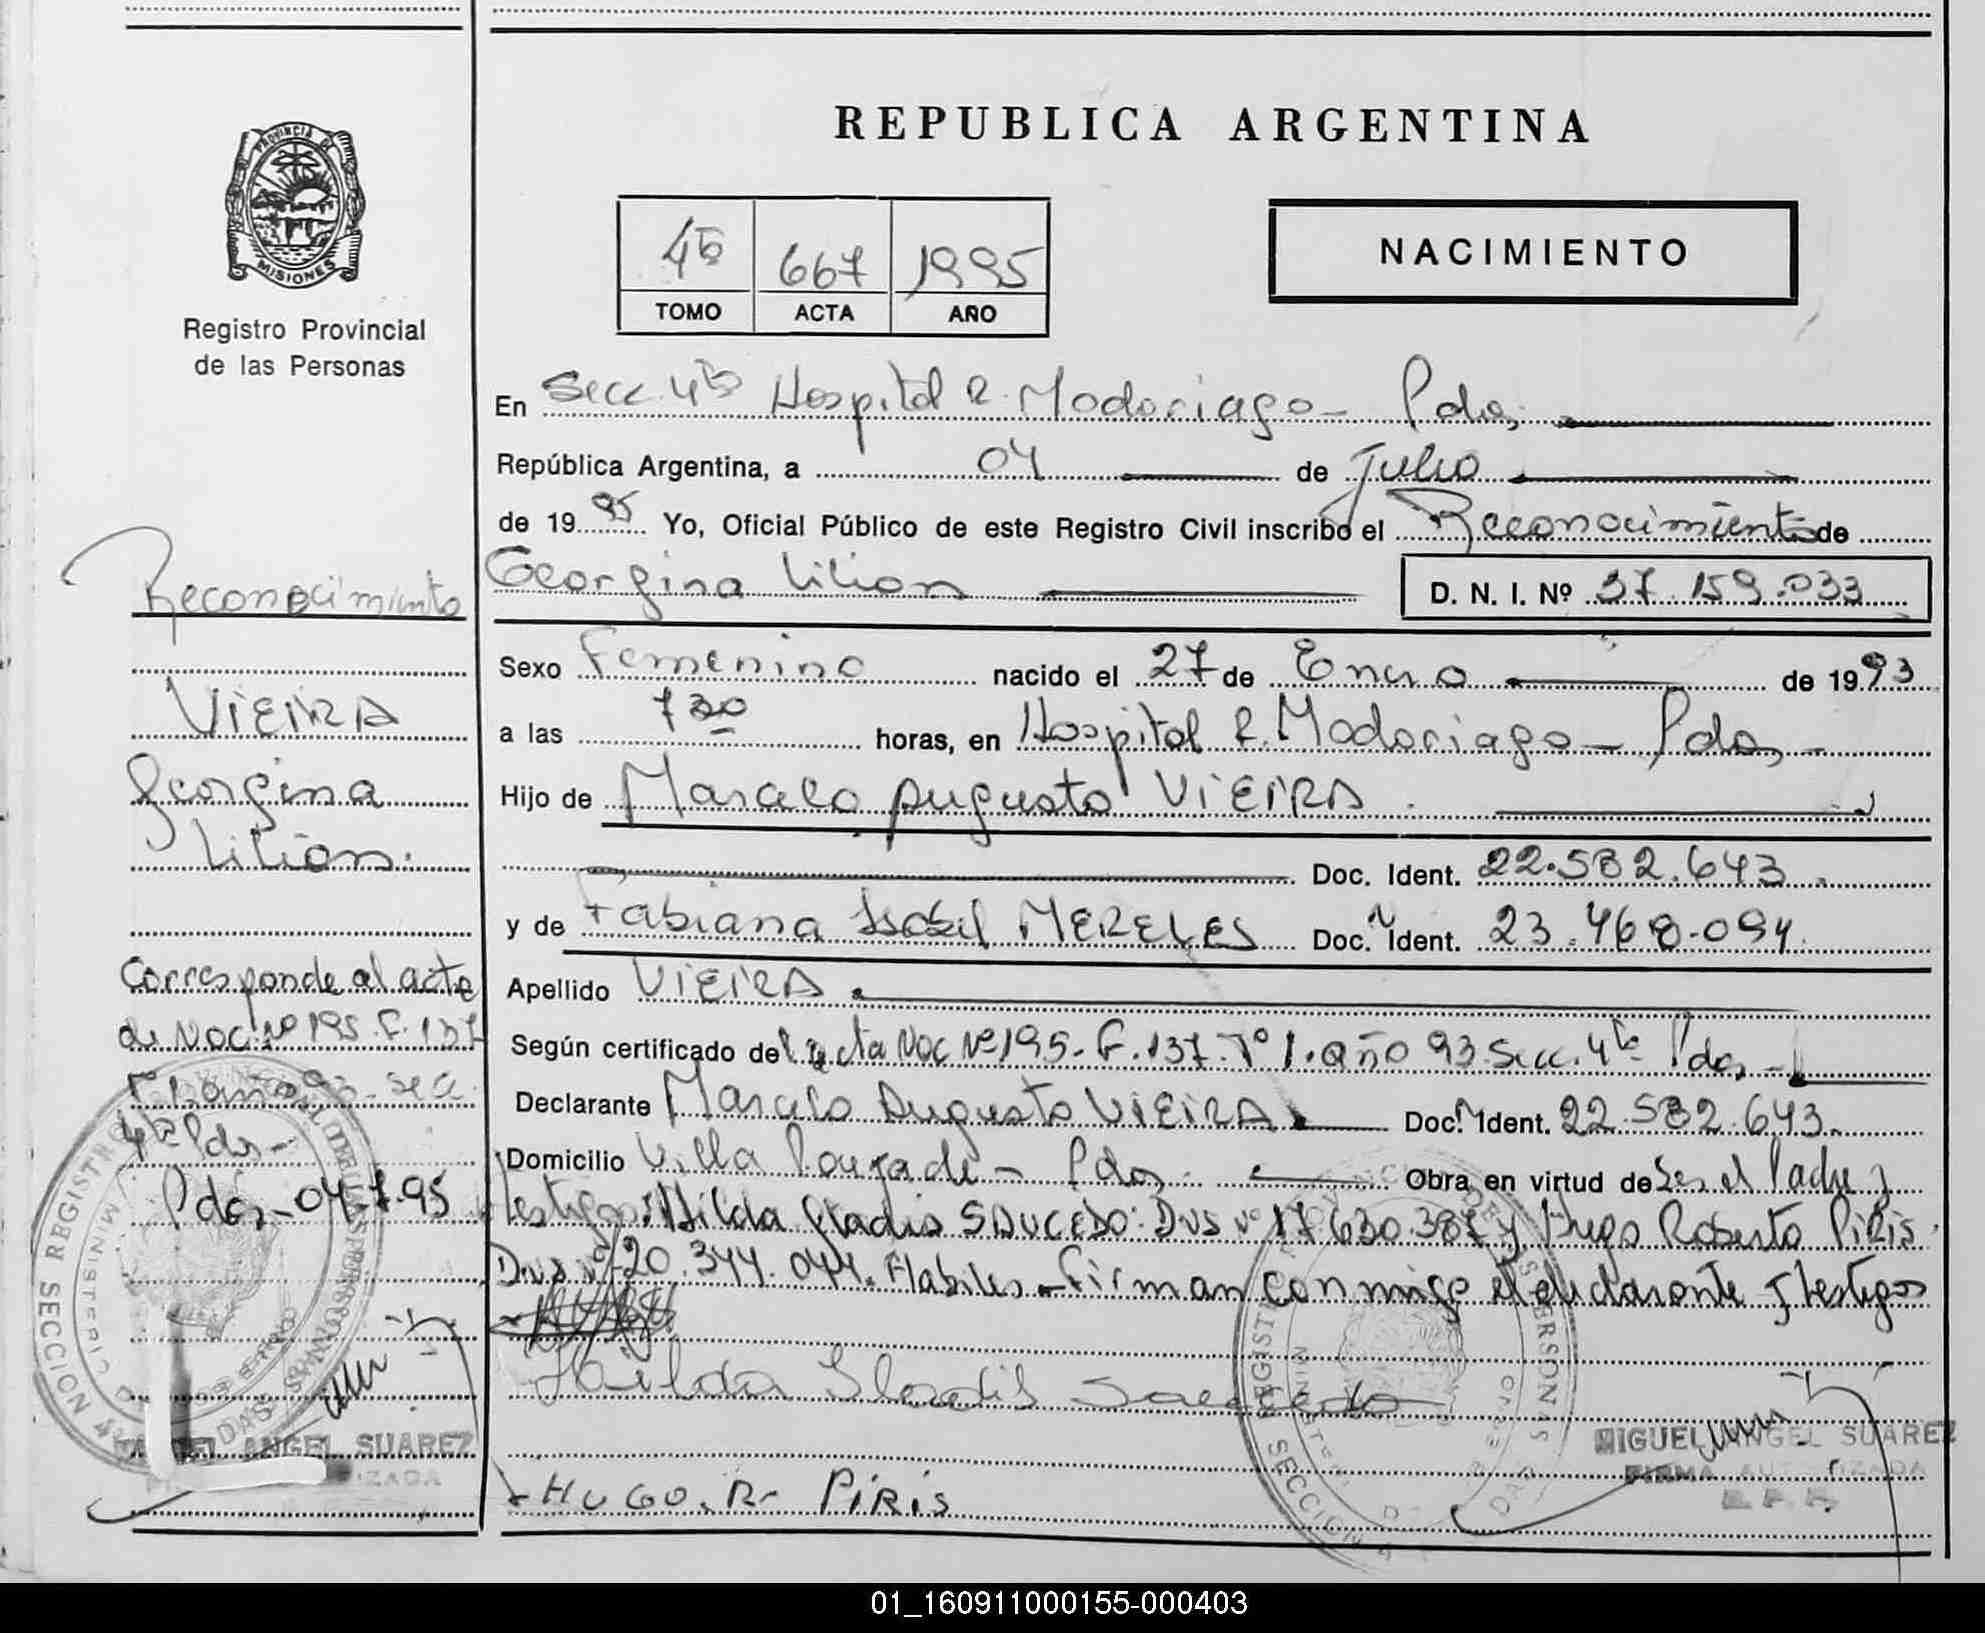 REPUBLICA ARGENTINA
PROVINCIA DE
MISIONES
Registro Provincial
de las Personas
4ta 667 1995
TOMO ACTA AÑO
NACIMIENTO
En Secc. 4ta Hospital R. Madariaga - Pdas,
República Argentina, a 04 de Julio
de 1995 Yo, Oficial Público de este Registro Civil inscribo el Reconocimiento de
Georgina Lilian D. N. I. Nº 37.159.033
Sexo Femenino nacido el 27 de Enero de 1993
a las 730 horas, en Hospital R. Madariaga - Pdas, -
Hijo de Marcelo Augusto VIEIRA
Doc. Ident. 22.582.643
y de Fabiana Isabel MERELES Doc. Ident. 23.468.094
Apellido VIEIRA
Según certificado del acta Nac Nº 195 - F. 137 - Tº 1 - año 93 Secc. 4ta Pdas, -
Declarante Marcelo Augusto VIEIRA Doc. Ident. 22.582.643.
Domicilio Villa Poujade - Pdas, - Obra en virtud de Ser el Padre y
testigos: Hilda Gladis SAUCEDO: DNI Nº 17.630.387 y Hugo Roberto PIRIS
DNI Nº 20.344.044. Habiles - Firman conmigo el declarante y testigos
Hilda Gladis Saucedo
HUGO. R. PIRIS
MIGUEL ANGEL SUAREZ
FIRMA AUTORIZADA
R. P. P.
Reconocimiento
VIEIRA
Georgina
Lilian.
Corresponde al acta
de Nac. Nº 195 F. 137
Tº 1 año 93 - Secc.
4ta Pdas -
Pdas, - 04.7.95
ANGEL SUAREZ
01_160911000155-000403